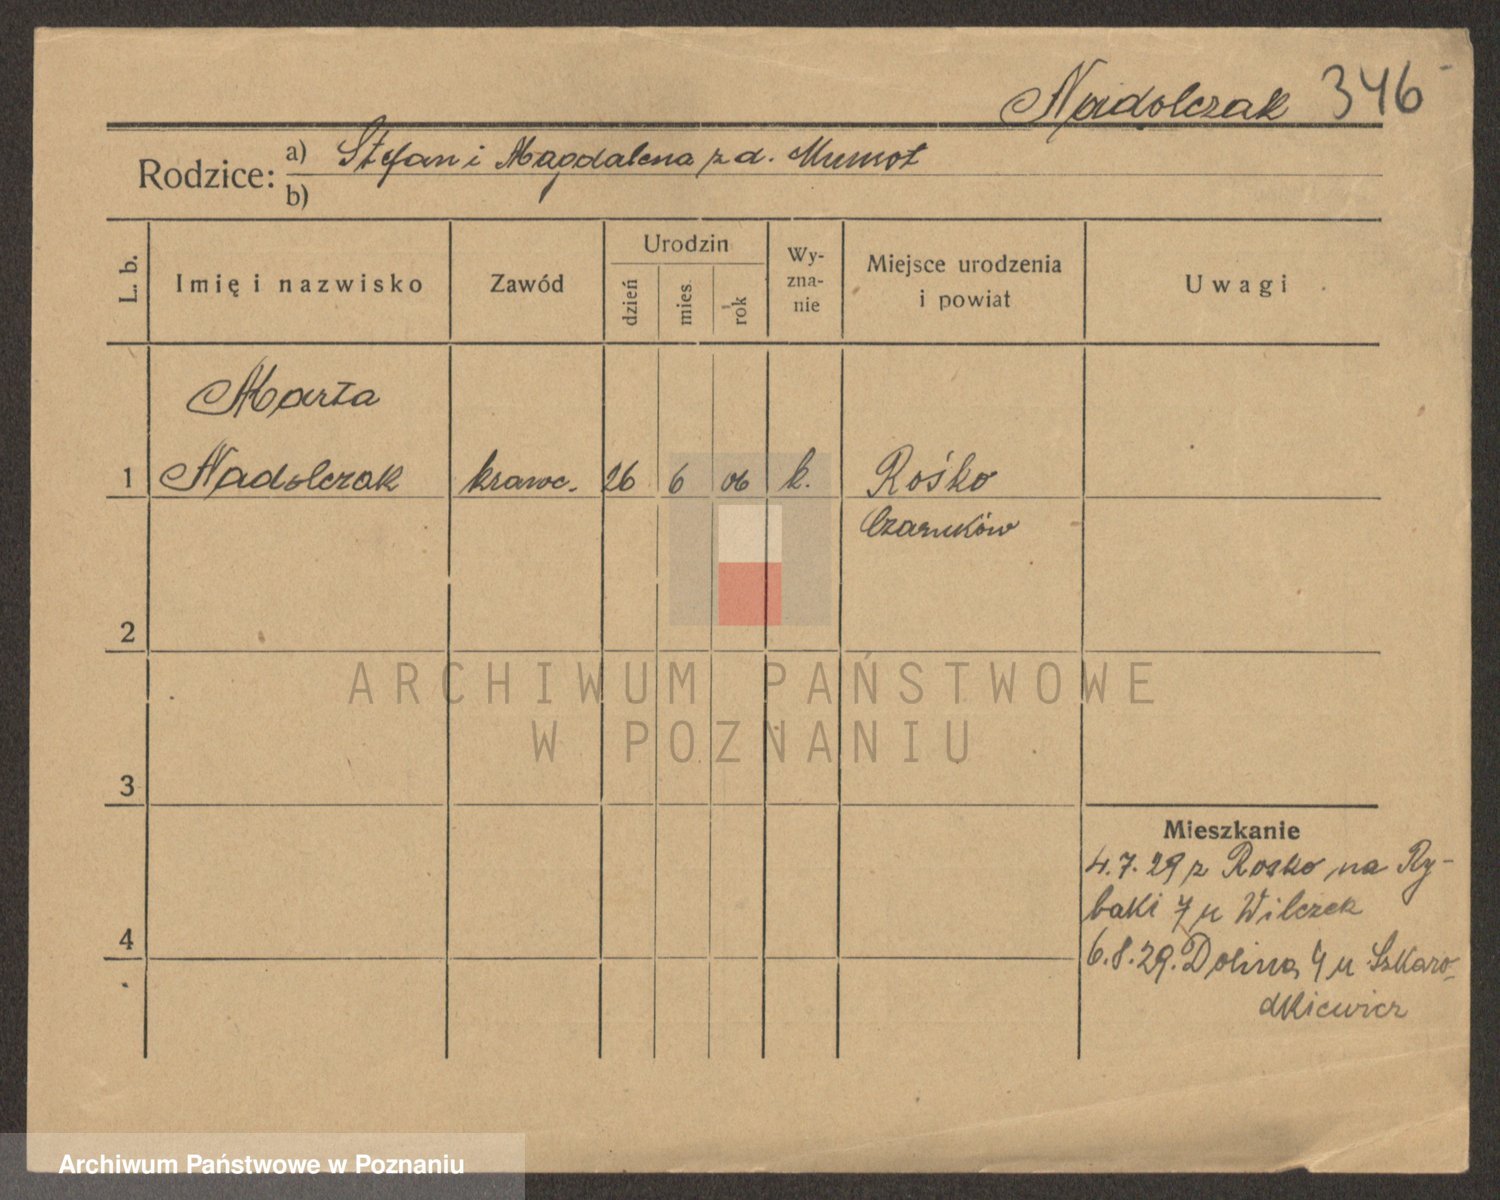 Nadolczak 346
Rodzice: a) Stefan i Magdalena z d. Mumot
b)
L. b.
Imię i nazwisko
Zawód
Urodzin
dzień
mies.
rok
Wy-
zna-
nie
Miejsce urodzenia
i powiat
Uwagi
Marta
1 Nadolczak krawc. 26 6 06 k. Rośko
Czarnków
2
ARCHIWUM PAŃSTWOWE
W POZNANIU
3
Mieszkanie
4.7.29 z Rosko na Ry-
baki 7 u Wilczek
4
6.8.29. Dolina 4 u Szkaro-
dkiewicz
Archiwum Państwowe w Poznaniu